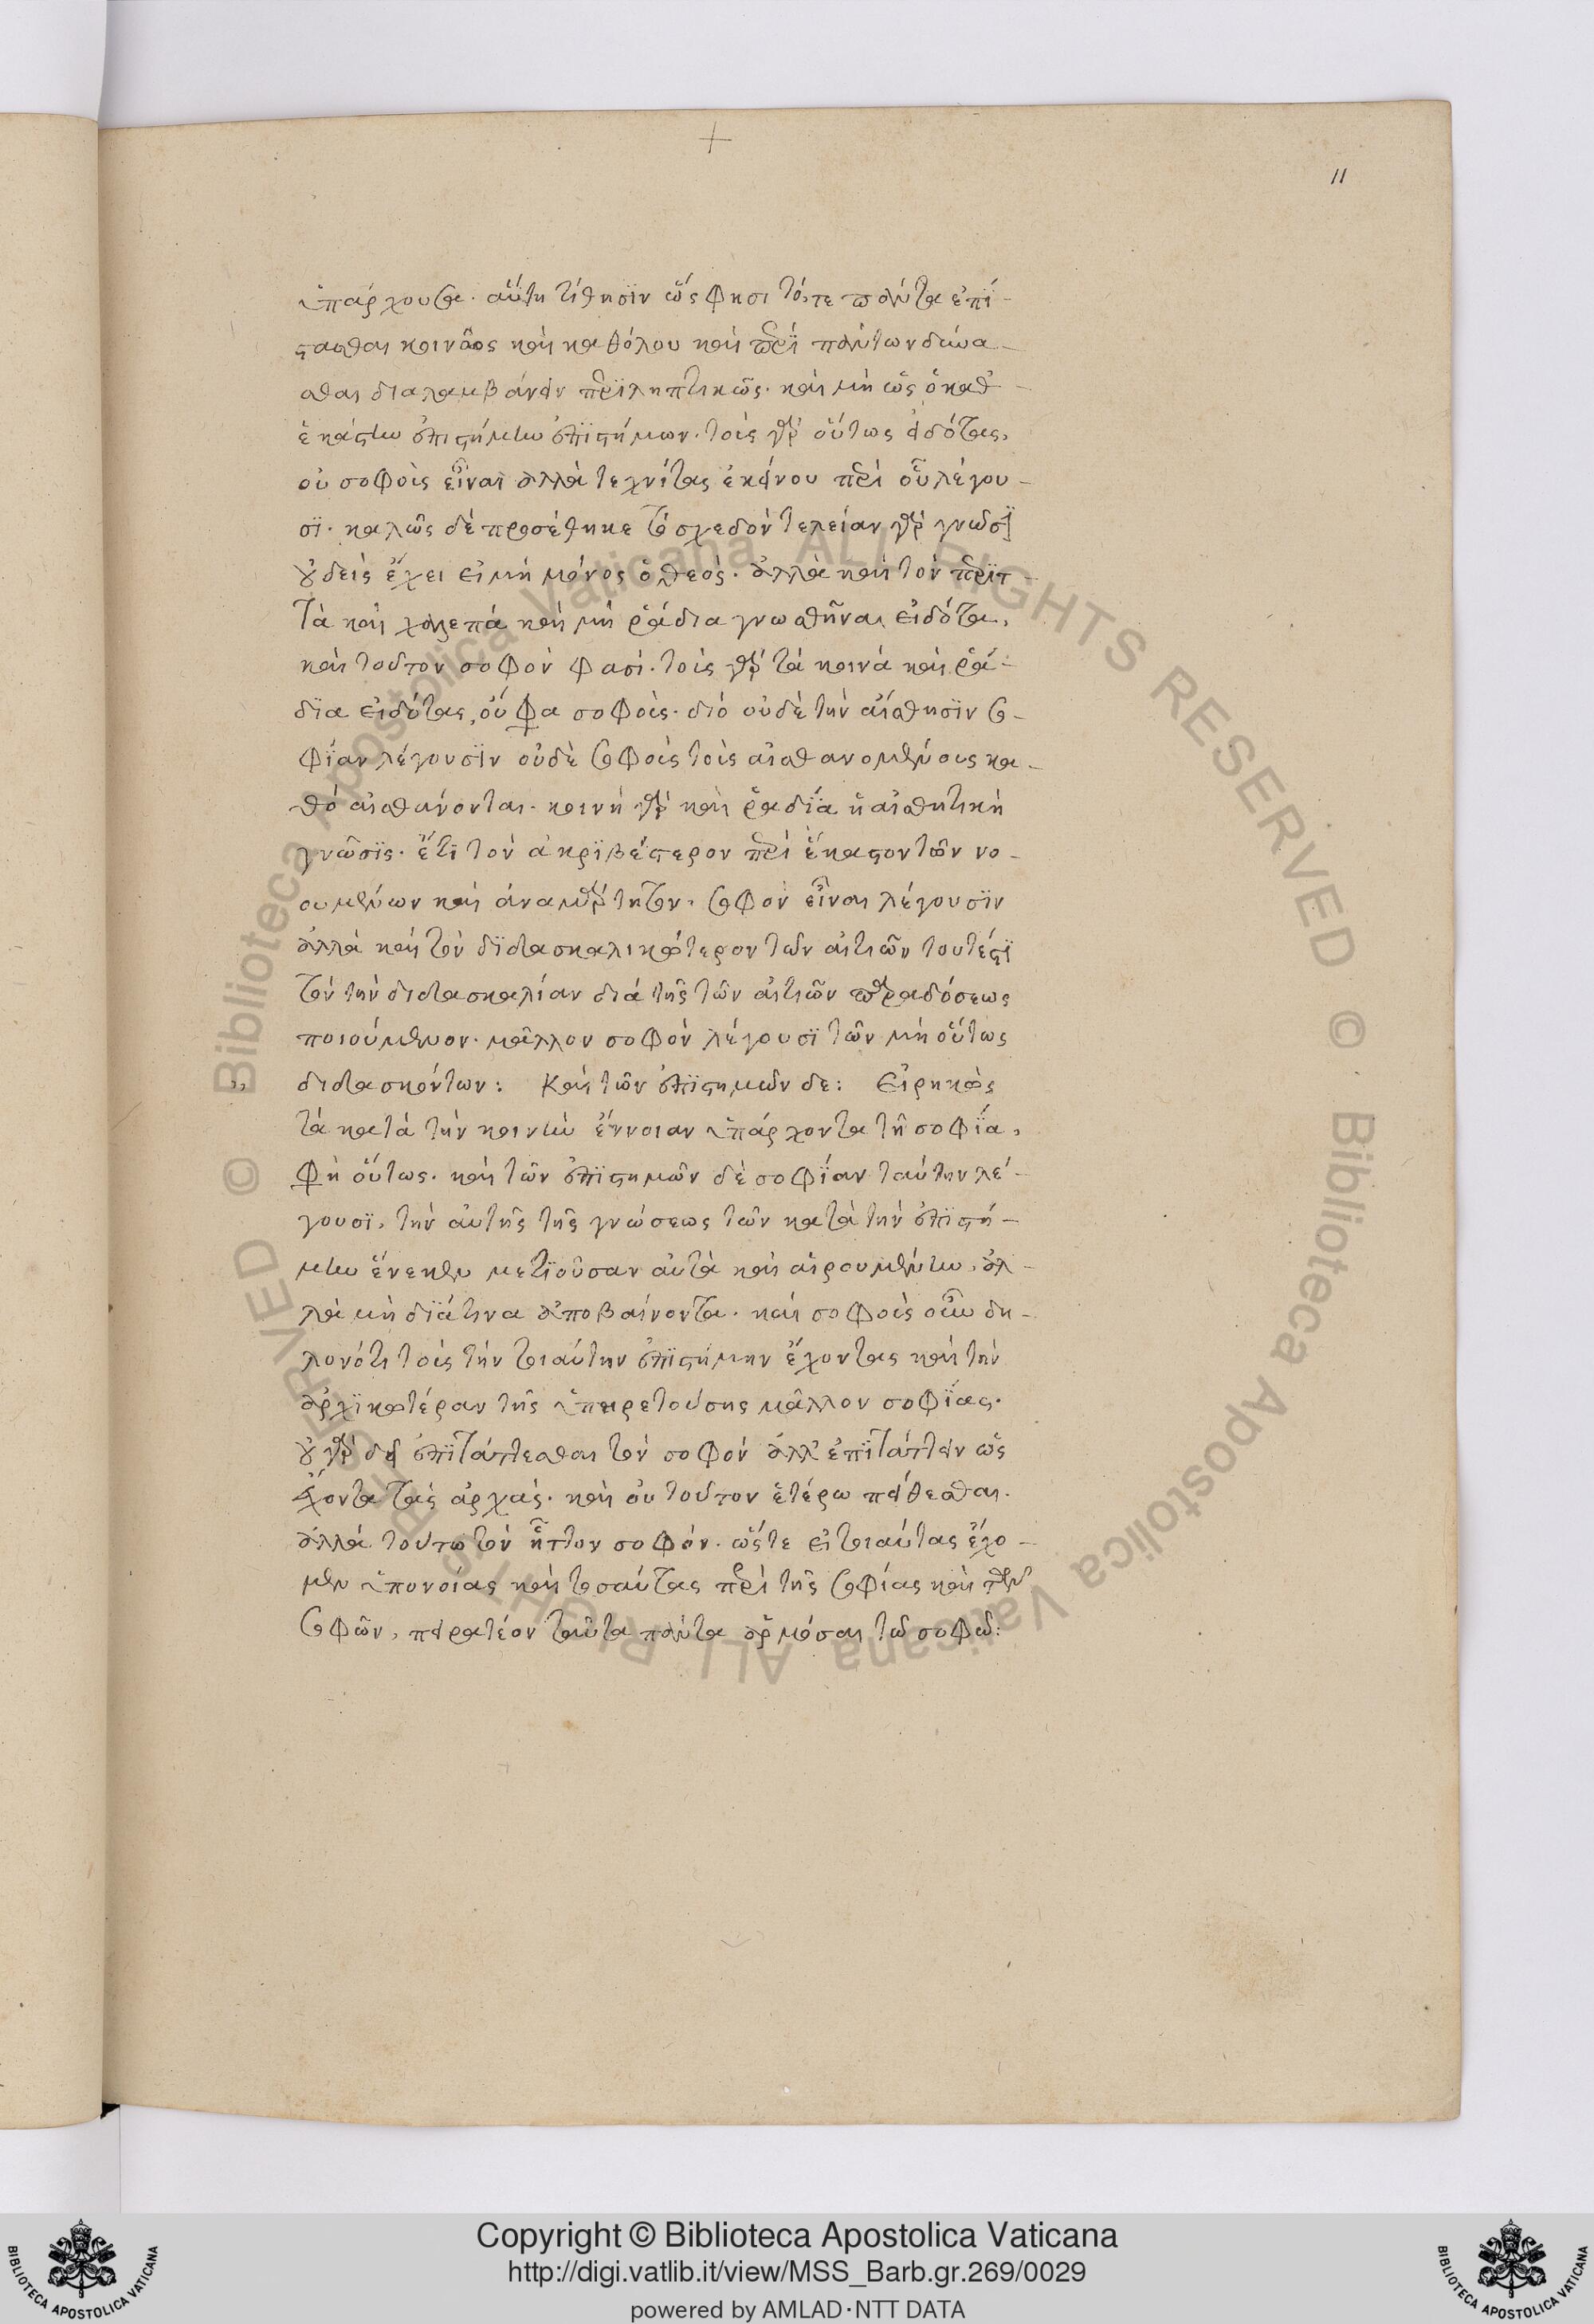 11
ὑπάρχουσα. αὕτη τίθησϊν ὥς φησι τό, τε πάντα ἐπί-
στασθαι κοινῶς καὶ καθόλου καὶ περὶ πάντων δύνα-
σθαι διαλαμβάνειν περιληπτικῶς. καὶ μὴ ὡς ὁ καθ'
ἑκάστην ἐπιστήμην ἐπιστήμων. τοὺς γὰρ οὕτως εἰδότας,
οὐ σοφοὺς εἶναι ἀλλὰ τεχνίτας ἐκείνου περὶ οὗ λέγου-
σϊ. καλῶς δὲ προσέθηκε τὸ σχεδὸν τελείαν γὰρ γνῶσϊ
οὐδεὶς ἔχει εἰ μὴ μόνος ὁ θεός. ἀλλὰ καὶ τὸν περιτ-
τὰ καὶ χαλεπὰ καὶ μὴ ῥάδια γνωσθῆναι εἰδότα,
καὶ τοῦτον σοφὸν φασί. τοὺς γὰρ τὰ κοινὰ καὶ ῥά-
δϊα εἰδότας, οὔ φασι σοφούς. διὸ οὐδὲ τὴν αἴσθησϊν σο-
φίαν λέγουσϊν οὐδὲ σοφοὺς τοὺς αἰσθανομένους κα-
θὸ αἰσθάνονται. κοινὴ γὰρ καὶ ῥαδΐα ἡ αἰσθητικὴ
γνῶσϊς. ἔτϊ τὸν ἀκρϊβέστερον περὶ ἕκαστον τῶν νο-
ουμένων καὶ ἀναμάρτητον. σοφὸν εἶναι λέγουσϊν
ἀλλὰ καὶ τὸν δϊδασκαλικώτερον τῶν αἰτιῶν τουτέστϊ
τὸν τὴν διδασκαλίαν διὰ τῆς τῶν αἰτιῶν παραδόσεως
ποιούμενον. μᾶλλον σοφὸν λέγουσϊ τῶν μὴ οὕτως
,, διδασκόντων: Καὶ τῶν ἐπϊστημῶν δε: Εἰρηκὼς
τὰ κατὰ τὴν κοινὴν ἔννοιαν ὑπάρχοντα τῇ σοφΐα,
φη οὕτως. καὶ τῶν ἐπϊστημῶν δὲ σοφΐαν ταύτην λέ-
γουσϊ, τὴν αὐτῆς τῆς γνώσεως τῶν κατὰ τὴν ἐπϊστή-
μην ἕνεκεν μετϊοῦσαν αὐτὰ καὶ αἱρουμένην, ἀλ-
λὰ μὴ δϊά τινα ἀποβαίνοντα. καὶ σοφοὺς οὖν δη-
λονότι τοὺς τὴν τοιαύτην ἐπϊστήμην ἔχοντας καὶ τὴν
ἀρχϊκωτέραν τῆς ὑπηρετούσης μᾶλλον σοφΐας.
οὐ γὰρ δεῖ ἐπϊτάττεσθαι τὸν σοφὸν ἀλλ' ἐπϊτάττειν ὡς
ἔχοντα τὰς ἀρχάς. καὶ οὐ τοῦτον ἑτέρω πείθεσθαι.
ἀλλὰ τούτω τὸν ἧττον σοφόν. ὥστε εἰ τοιαύτας ἔχο-
μεν ὑπονοίας καὶ τοσαύτας περὶ τῆς σοφίας καὶ τῶν
σοφῶν, πειρατέον ταῦτα πάντα ἁρμόσαι τῶ σοφῶ:
© Biblioteca Apostolica Vaticana ALL RIGHTS RESERVED © Biblioteca Apostolica Vaticana ALL RIGHTS RESERVED
Copyright © Biblioteca Apostolica Vaticana
http://digi.vatlib.it/view/MSS_Barb.gr.269/0029
powered by AMLAD·NTT DATA
BIBLIOTECA APOSTOLICA VATICANA
BIBLIOTECA APOSTOLICA VATICANA